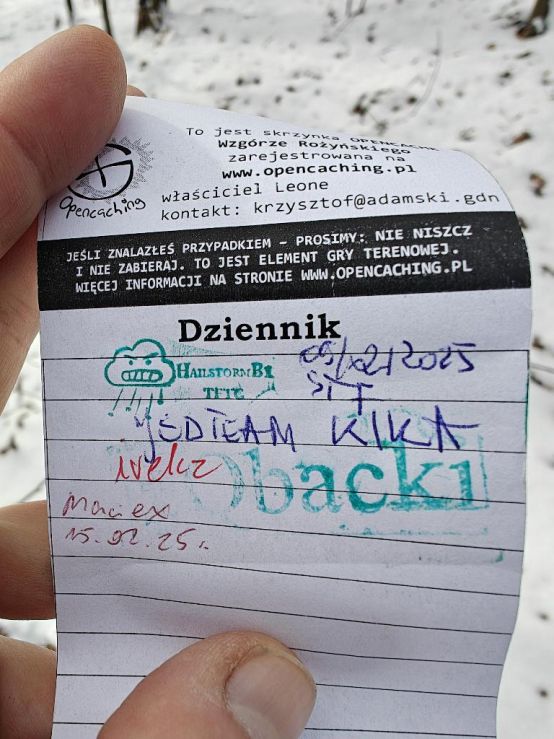 To jest skrzynka OPENCACHING
Wzgórze Rożyńskiego
zarejestrowana na
www.opencaching.pl
właściciel Leone
kontakt: krzysztof@adamski.gdn
Opencaching
JEŚLI ZNALAZŁEŚ PRZYPADKIEM – PROSIMY: NIE NISZCZ
I NIE ZABIERAJ. TO JEST ELEMENT GRY TERENOWEJ.
WIĘCEJ INFORMACJI NA STRONIE WWW.OPENCACHING.PL
Dziennik
HAILSTORMB1
TFTC
09/02/2025
KIKA
backi
Maciex
15.02.25r.